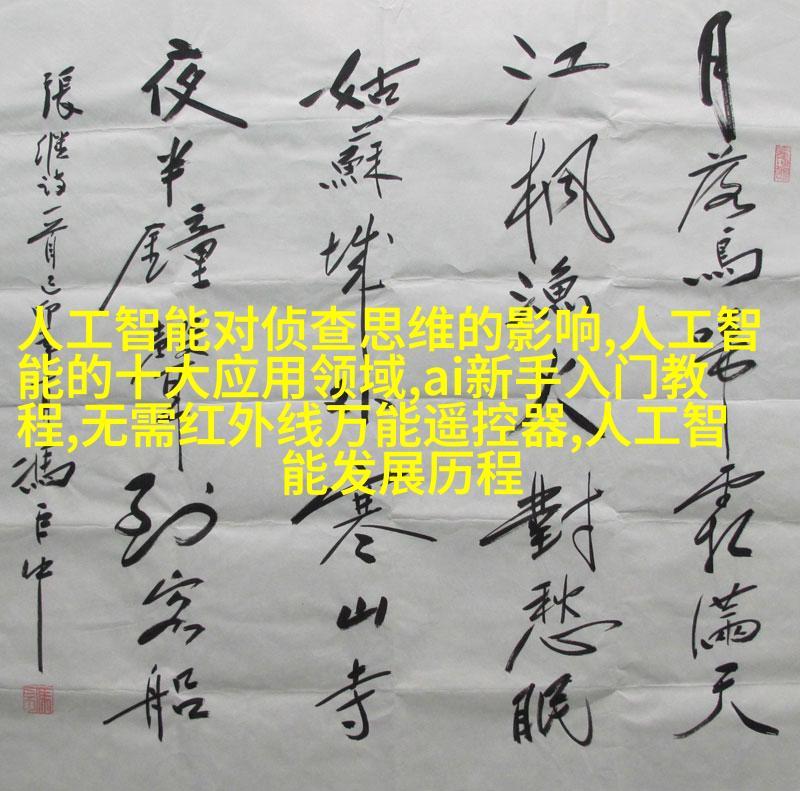 月落烏啼霜滿天
江楓漁火對愁眠
姑蘇城外寒山寺
夜半鐘聲到客船
張繼詩一首己卯
人工智能对侦查思维的影响,人工智
能的十大应用领域,ai新手入门教
程,无需红外线万能遥控器,人工智
能发展历程